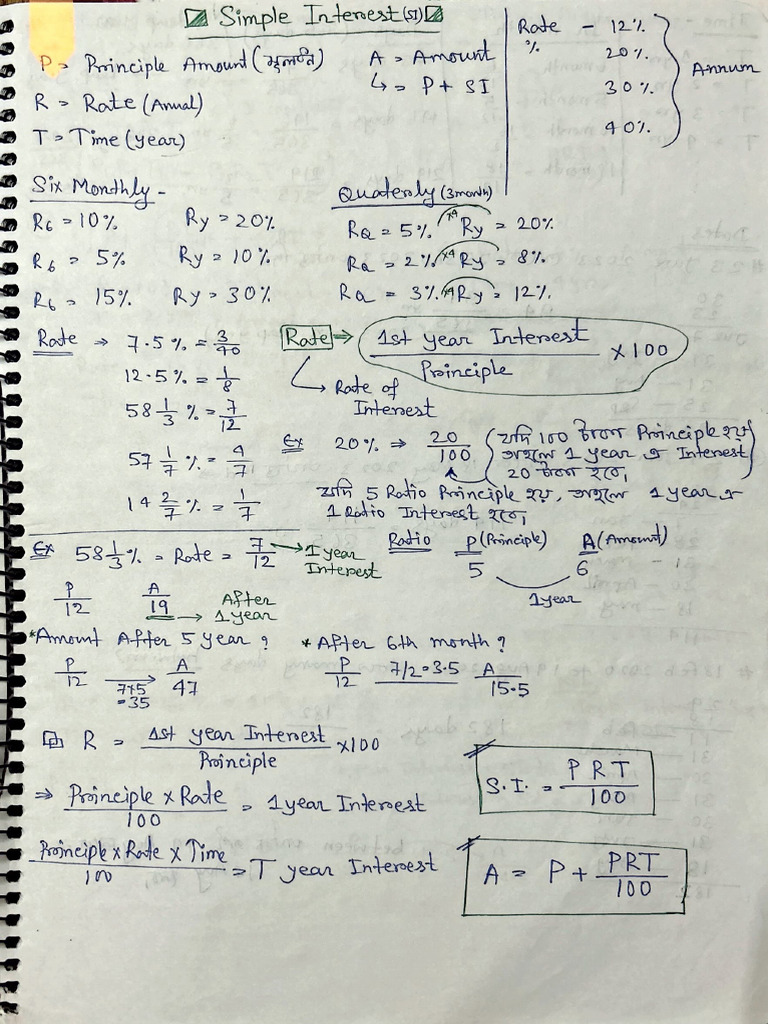 Simple Interest (SI)
P = Principle Amount (মূলধন)
A = Amount
↳ = P + SI
R = Rate (Annual)
T = Time (year)
Rate - 12%
% 20%
30%
40%
Annum
Six Monthly -
R6 = 10% Ry = 20%
R6 = 5% Ry = 10%
R6 = 15% Ry = 30%
Quaterly (3 month)
RQ = 5% x4 Ry = 20%
RQ = 2% x4 Ry = 8%
RQ = 3% x4 Ry = 12%
Rate ⇒ 7.5% = 3/40
12.5% = 1/8
58 1/3 % = 7/12
57 1/7 % = 4/7
14 2/7 % = 1/7
Rate ⇒ 1st year Interest / Principle × 100
↳ Rate of
Interest
Ex 20% ⇒ 20/100 (যদি 100 টাকা Principle হয়
তাহলে 1 year এ Interest
20 টাকা হবে,
যদি 5 Ratio Principle হয়, তাহলে 1 year এ
1 Ratio Interest হবে,
Ratio P (Principle) A (Amount)
5 6
1 year
Ex 58 1/3 % = Rate = 7/12 → 1 year
Interest
P/12 A/19 → After
1 year
*Amount After 5 year ?
P/12 7×5 = 35 → A/47
* After 6th month ?
P/12 7/2 = 3.5 A/15.5
R = 1st year Interest / Principle ×100
⇒ Principle × Rate / 100 = 1 year Interest
Principle × Rate × Time / 100 = T year Interest
S.I. = PRT / 100
A = P + PRT / 100